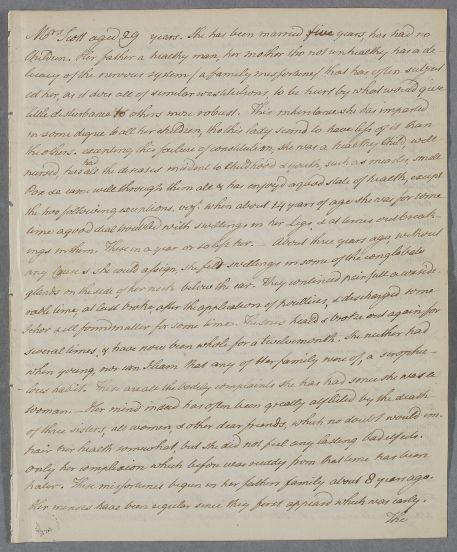 Mrs. Scott aged 29 years. She has been married five years, has had no
Children. Her father a healthy man, her mother tho not unhealthy has a de-
licacy of the nervous system (a family misfortune) that has often subject
ed her, as it does all of similar constitutions to be hurt by what would give
little disturbance to others more robust. This inheritance she has imparted
in some degree to all her children, tho this lady seemd to have less of it than
the others. excepting this failure of constitution, she was a healthy Child, well
nursed, has had all the diseases incident to Childhood & youth, such as measles, small
Pox &c came well through them all & has enjoyd a good state of health, except
the two following exceptions, vizt. when about 14 years of age she was for some
time a good deal troubled with swellings in her Legs & at times outbreak-
ings in them. These in a year or so left her. — About three years ago, without
any Cause she could assign, she felt swellings in some of the conglobate
glands on the side of her neck below the ear. They continued painfull a conside-
rable time, at last broke, after the application of poultices, & discharged some
Ichor & ill formd matter for some time. The sores heald & broke out again for
several times, & have now been whole for a twelvemonth. She neither had
when young, nor can I learn that any of Her family now of, a scrophu-
lous habit. These are all the bodily complaints she has had since she was a
woman. — Her mind indeed has often been greatly afflicted by the death
of three sisters, all women, & other dear friends, which no doubt would im-
pair her health somewhat, but she did not feel any lasting bad effects.
only her complexion which before was ruddy from that time has been
paler. These misfortunes began in her fathers family about 8 years ago.
Her menses have been regular since they first appeard which was early.
The